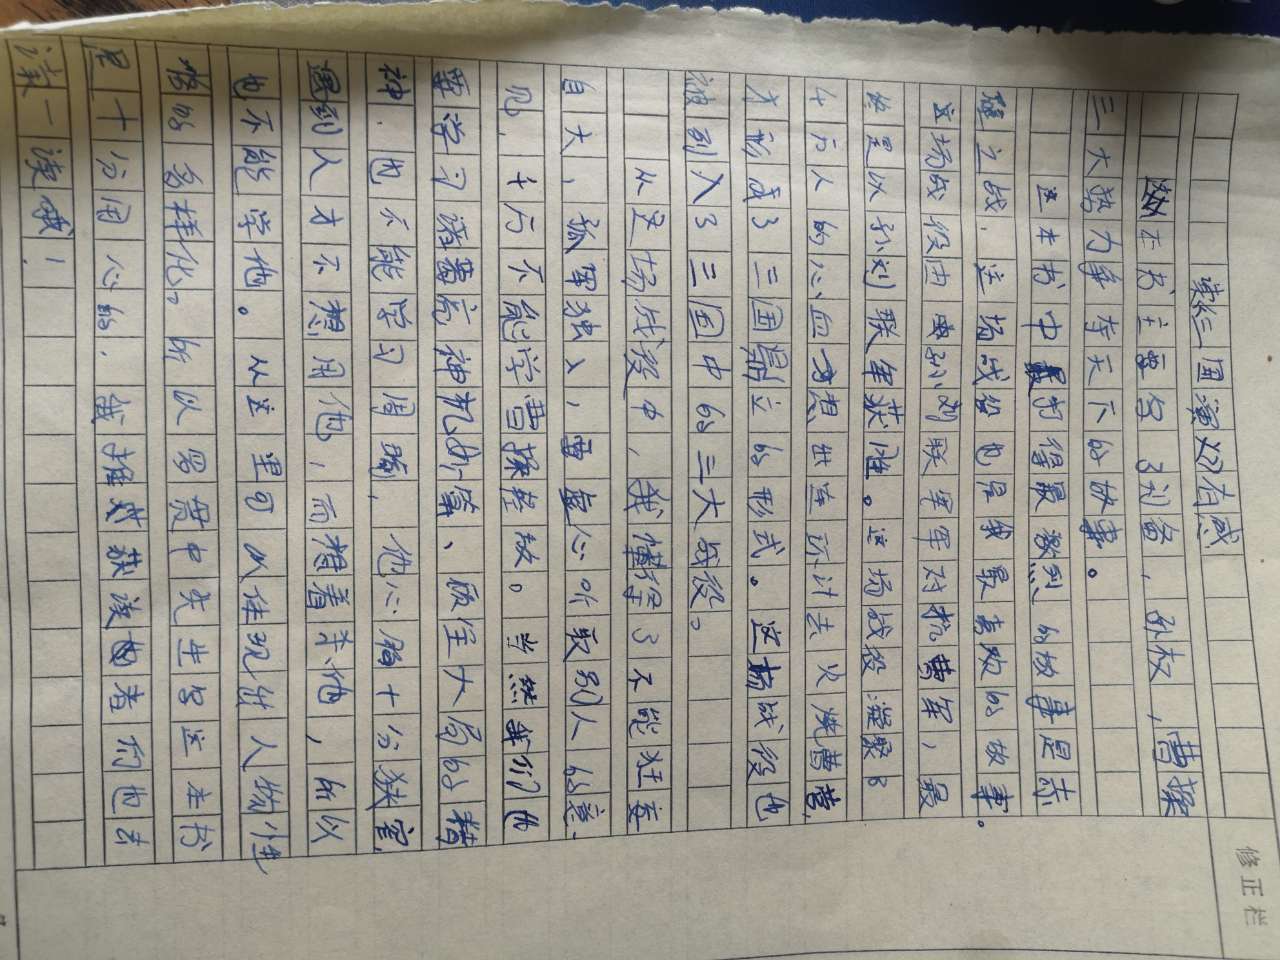 读《三国演义》有感
这本书主要写了刘备，孙权，曹操
三大势力争夺天下的故事。
这本书中最打得最激烈的故事是赤
壁之战，这场战役也是我最喜欢的故事。
这场战役由孙刘联军军对抗曹军，最
终是以孙刘联军获胜。这场战役凝聚了
千万人的心血才想出连环计去火烧曹营，
才形成了三国鼎立的形式。这场战役也
被列入了三国中的三大战役。
从这场战役中，我懂得了不能狂妄
自大，孤军独入，要虚心听取别人的意
见，千万不能学曹操轻敌。当然我们也
要学习诸葛亮神机妙算、顾全大局的精
神，也不能学习周瑜，他心胸十分狭窄，
遇到人才不想用他，而想着弃他，所以
也不能学他。从这里可以体现出人物性
格的多样化。所以罗贯中先生写这本书
是十分用心的，我推荐读者们也去
读一读哦！
修正栏